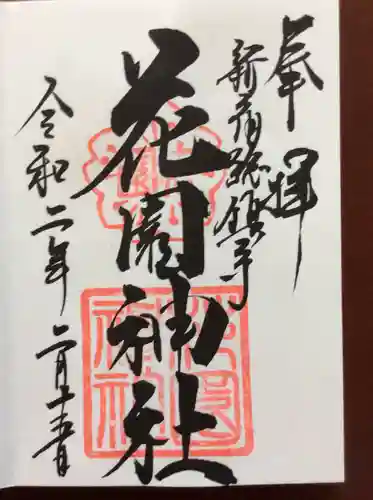 奉拝
新宿総鎮守
花園神社
令和二年二月十五日